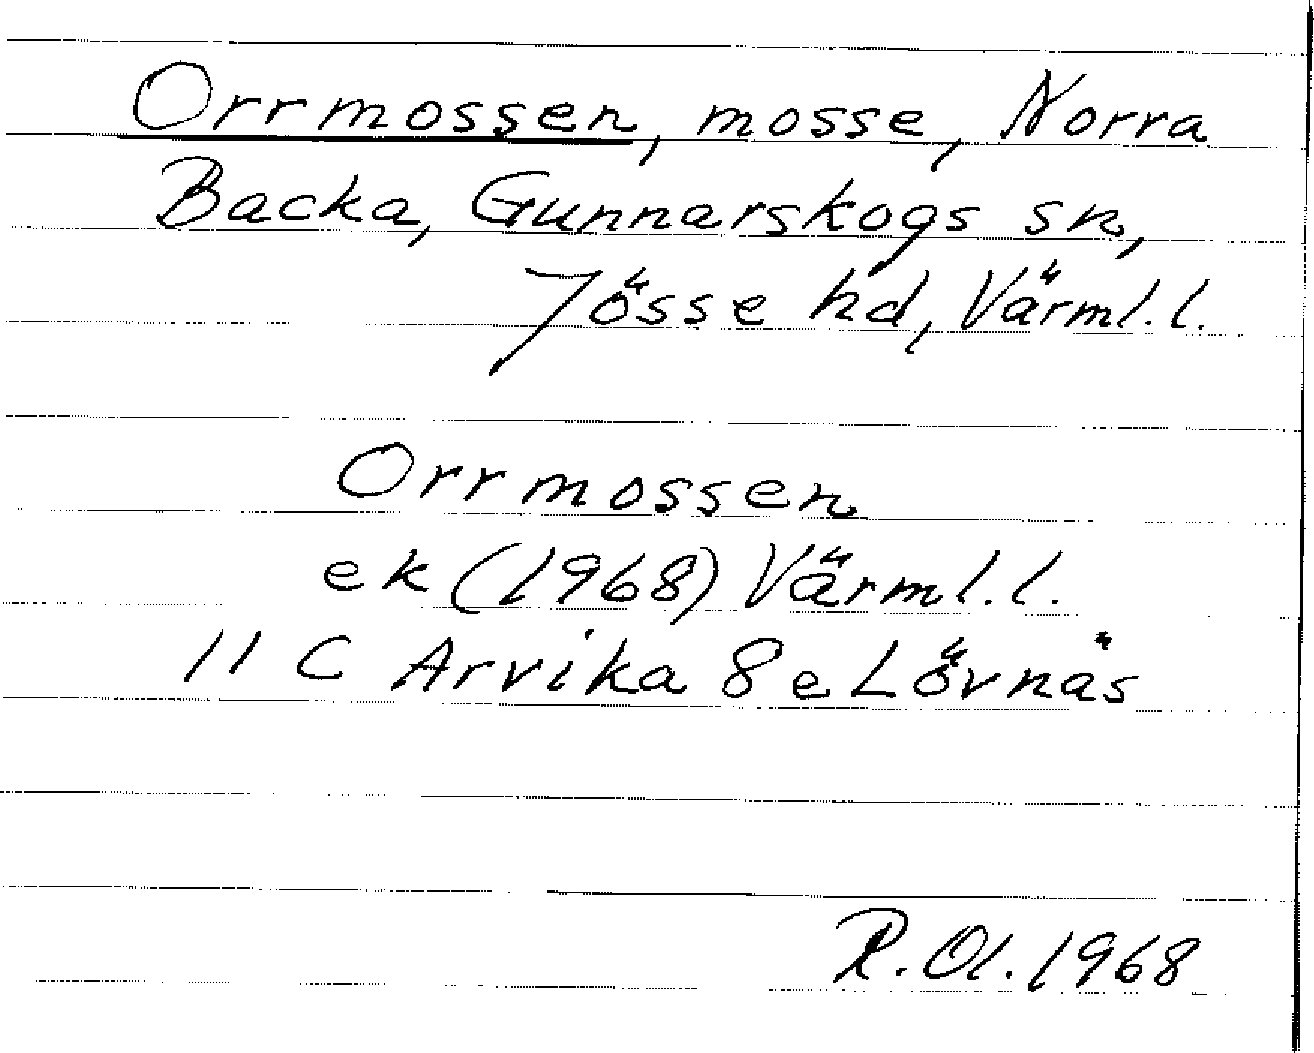 Orrmossen, mosse, Norra
Backa, Gunnarskogs sn,
Jösse hd, Värml.l.
Orrmossen
ek (1968) Värml.l.
11 C Arvika 8 e Lövnäs
R.Ol.1968